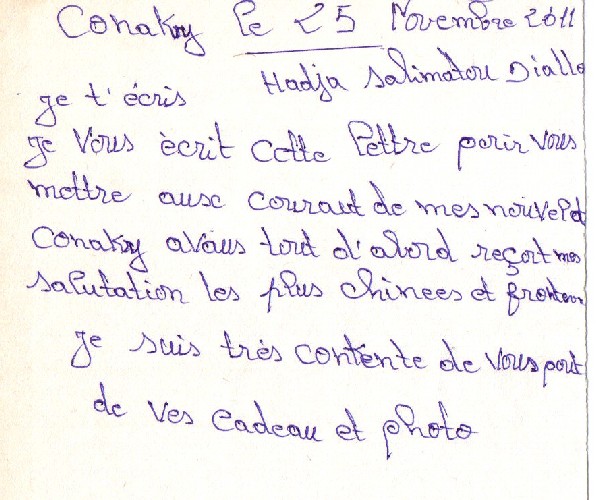 Conakry le 25 Novembre 2011
Hadja Salimatou Diallo
je t'écris
je vous ècrit cette lettre pour vous
mettre ausc courant de mes nouvel d
Conakry avans tout d'abord reçoit mes
salutation les plus chinees et
je suis très contente de vous pour
de ves cadeau et photo